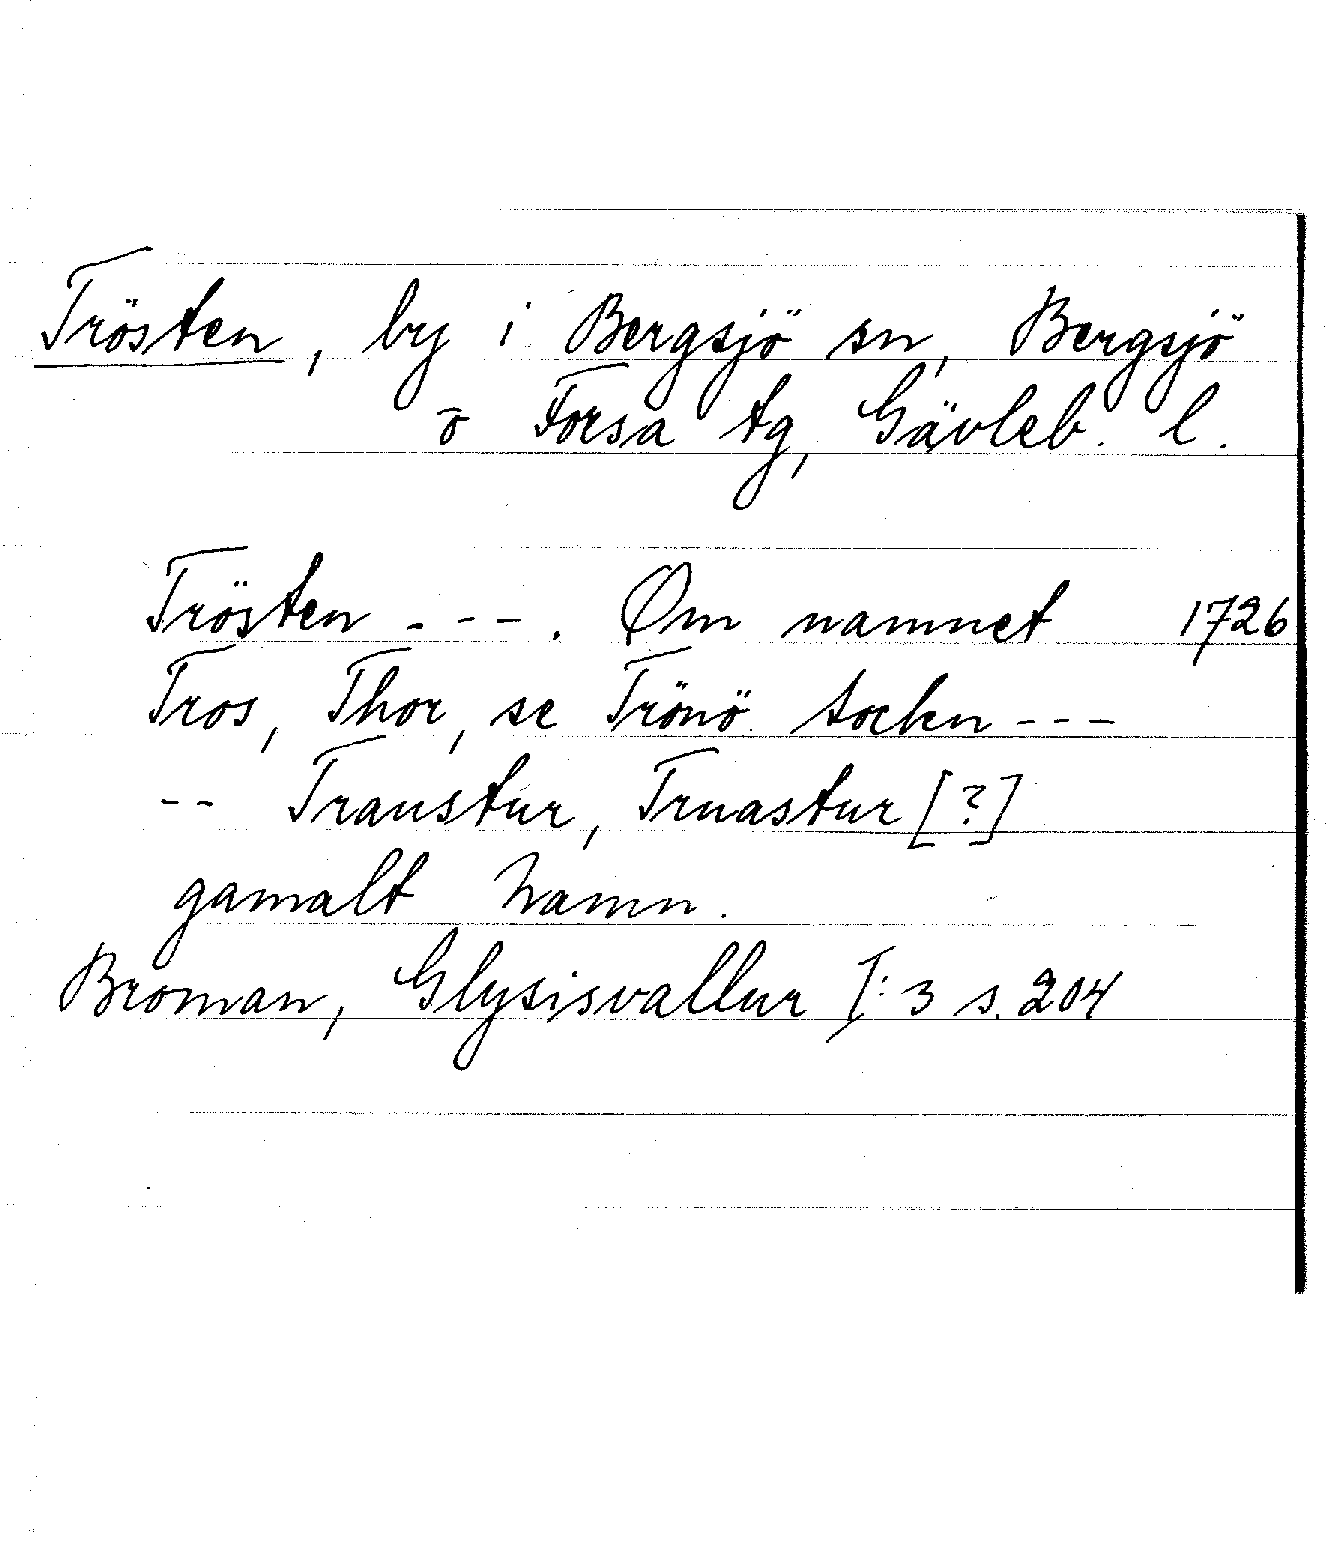 Trösten, by i Bergsjö sn, Bergsjö
o Forsa tg, Gävleb. l.
Trösten - - - . Om namnet 1726
Tros, Thor, se Trönö sockn - - -
- - Traustur, Truastur [?]
gamalt Namn.
Broman, Glysisvallur I: 3 s. 204